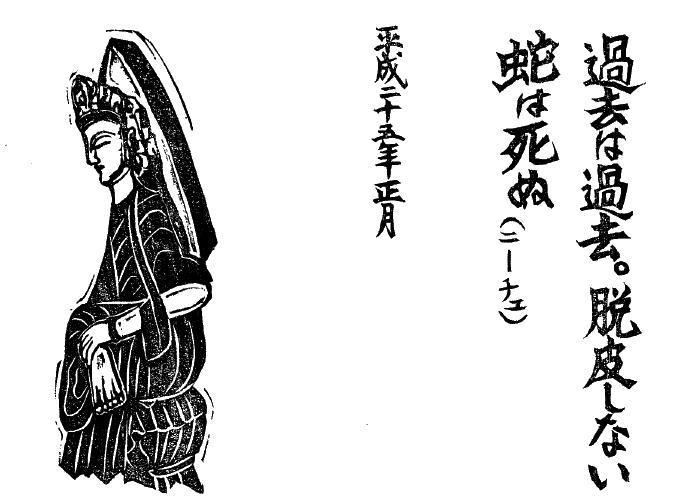 過去は過去。脱皮しない
蛇は死ぬ(ニーチェ)
平成二十五年正月